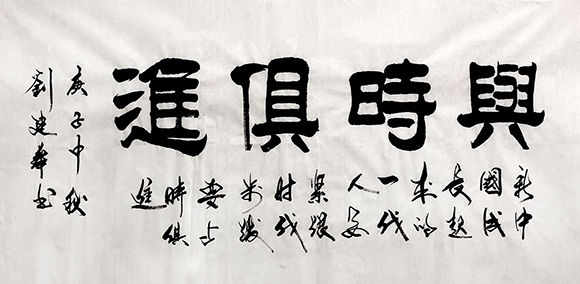 與時俱進
新中
國成
長起
来的
一代
人
緊跟
时代
步
要与
時俱
進
庚子中秋
劉建華书